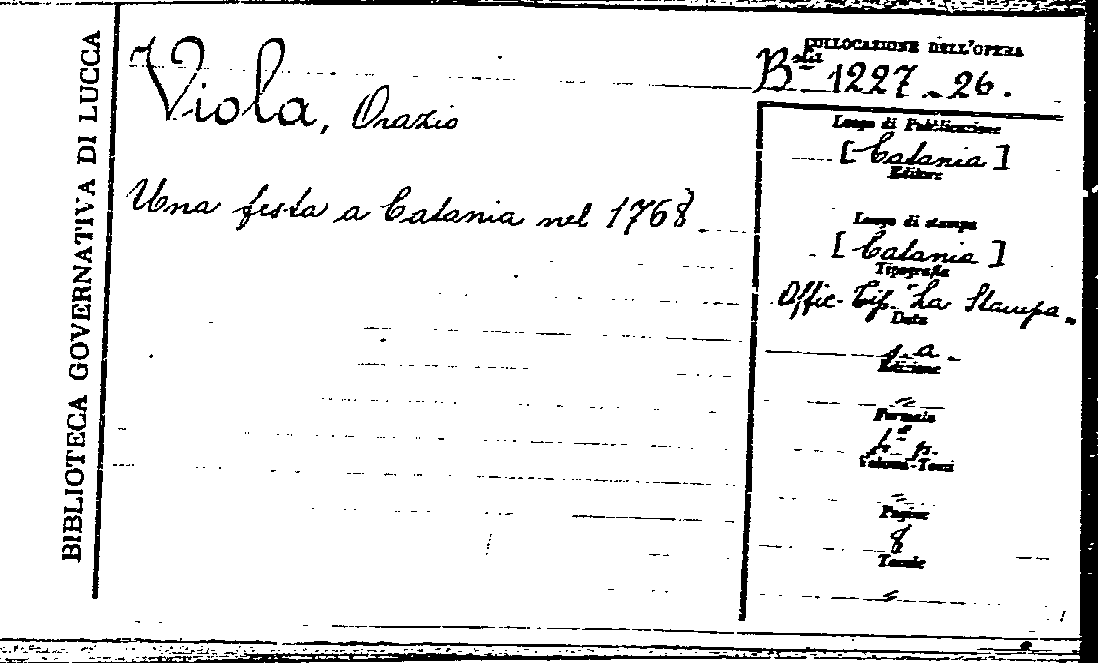 BIBLIOTECA GOVERNATIVA DI LUCCA
Viola, Orazio
Una festa a Catania nel 1768.
COLLOCAZIONE DELL'OPERA
Bta 1227 - 26.
Luogo di Pubblicazione
[Catania]
Editore
Luogo di stampa
[Catania]
Tipografia
Offic. Tip. "La Stampa.
Data
s.a.
Edizione
"
Formato
Volumi-Tomi
"
Pagine
8
Tavole
"